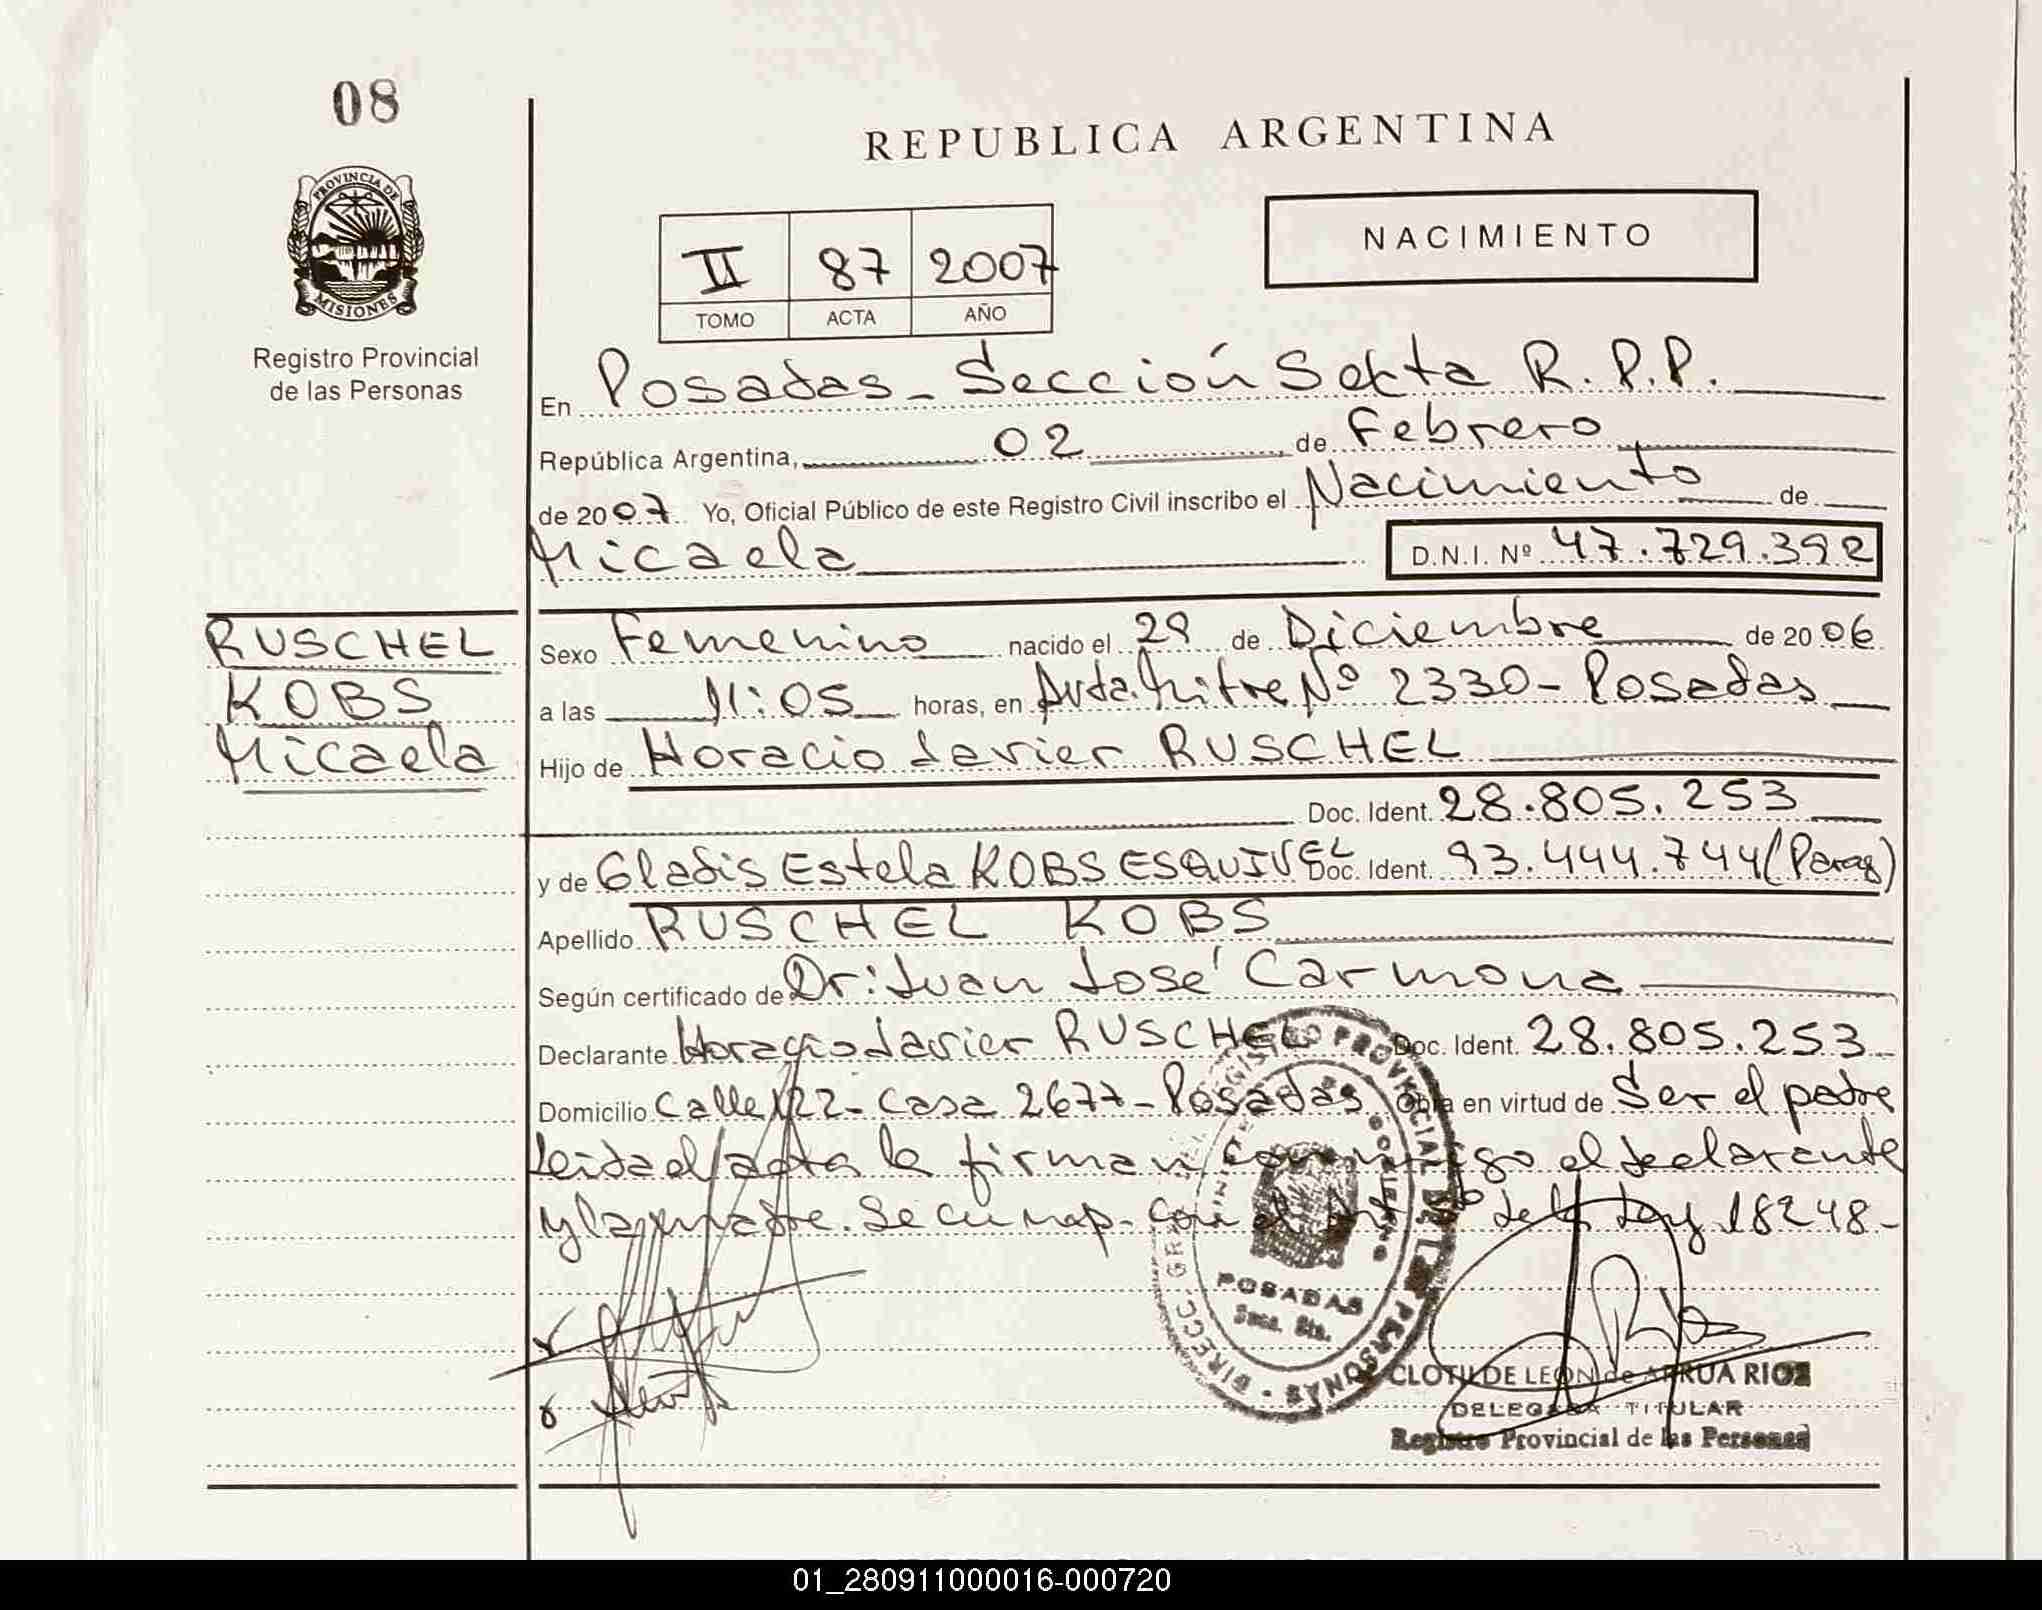 08
PROVINCIA DE
MISIONES
Registro Provincial
de las Personas
REPUBLICA ARGENTINA
NACIMIENTO
II 87 2007
TOMO ACTA AÑO
En Posadas - Sección Sexta R.P.P.
República Argentina, 02 de Febrero
de 2007 Yo, Oficial Público de este Registro Civil inscribo el Nacimiento de
Micaela D.N.I. Nº 47.729.392
RUSCHEL
KOBS
Micaela
Sexo Femenino nacido el 29 de Diciembre de 2006
a las 11:05 horas, en Avda. Mitre Nº 2330 - Posadas
Hijo de Horacio Javier RUSCHEL
Doc. Ident. 28.805.253
y de Gladis Estela KOBS ESQUIVEL Doc. Ident. 93.444.744 (Parag)
Apellido RUSCHEL KOBS
Según certificado de Dr: Juan José Carmona
Declarante Horacio Javier RUSCHEL Doc. Ident. 28.805.253
Domicilio Calle 122 - Casa 2677 - Posadas Obra en virtud de Ser el padre
Leida el acta la firman conmigo el declarante
y la madre. Se cump. con el Art de la Ley 18248 -
DIRECC. GRAL. REGISTRO PROVINCIAL DE LAS PERSONAS
MINISTERIO DE GOBIERNO
POSADAS
Secc. 6ta.
CLOTILDE LEON de ARRUA RIOS
DELEGADA TITULAR
Registro Provincial de las Personas
01_280911000016-000720